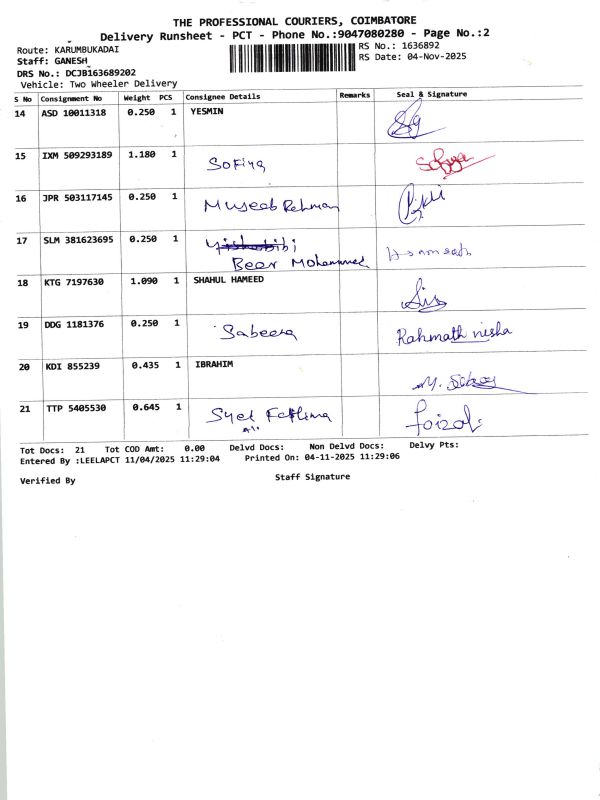 THE PROFESSIONAL COURIERS, COIMBATORE
Delivery Runsheet - PCT - Phone No.:9047080280 - Page No.:2
Route: KARUMBUKADAI RS No.: 1636892
Staff: GANESH RS Date: 04-Nov-2025
DRS No.: DCJB163689202
Vehicle: Two Wheeler Delivery
S No Consignment No Weight PCS Consignee Details Remarks Seal & Signature
14 ASD 10011318 0.250 1 YESMIN
15 IXM 509293189 1.180 1 Sofiya Sofiya
16 JPR 503117145 0.250 1 Mujeeb Rehman
17 SLM 381623695 0.250 1
Beer Mohammed
18 KTG 7197630 1.090 1 SHAHUL HAMEED
19 DDG 1181376 0.250 1 Sabeera Rahmath nisha
20 KDI 855239 0.435 1 IBRAHIM
21 TTP 5405530 0.645 1 Syed Faizal
Ali
Tot Docs: 21 Tot COD Amt: 0.00 Delvd Docs: Non Delvd Docs: Delvy Pts:
Entered By :LEELAPCT 11/04/2025 11:29:04 Printed On: 04-11-2025 11:29:06
Verified By Staff Signature